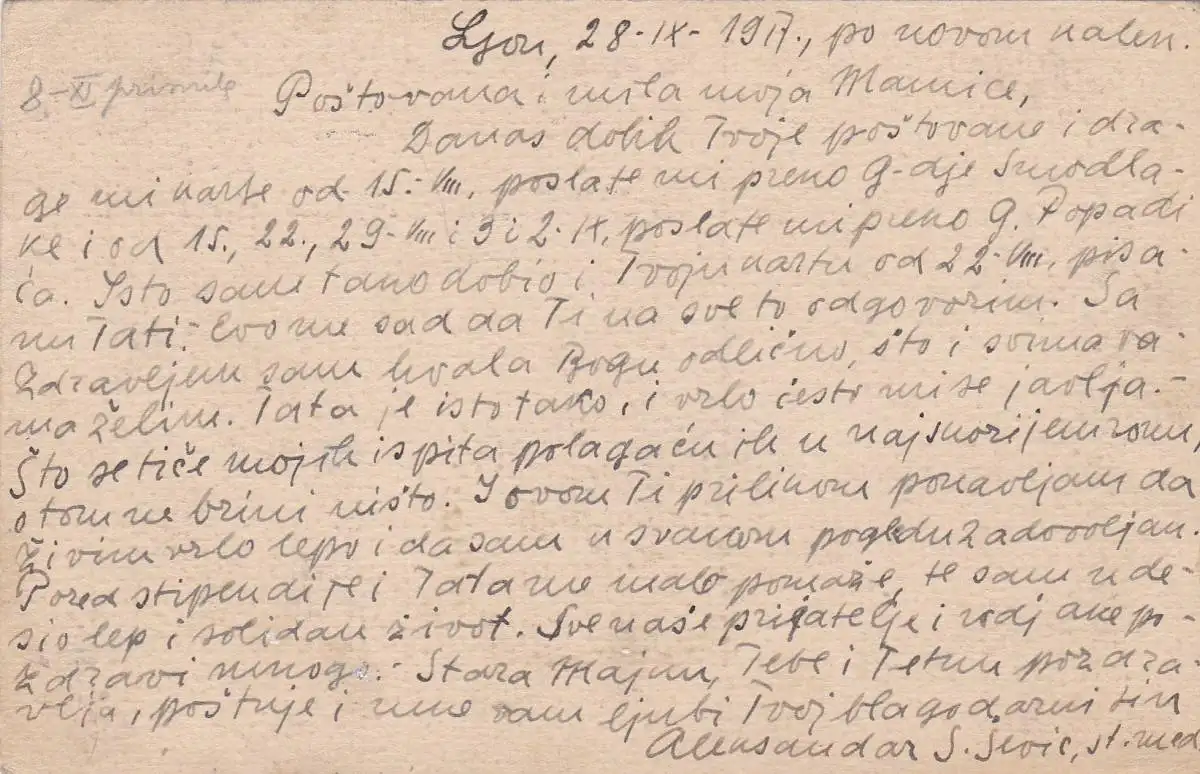 Lyon, 28-IX-1917., po novom kalen.
8-XI primila
Poštovana i mila moja Mamice,
Danas dobih Tvoje poštovane i dra-
ge mi karte od 15.-VIII, poslate mi preko G-dje Smodla-
ke i od 15., 22., 29-VIII i 3 i 2-IX, poslate mi preko G. Popadi
ća. Isto sam tako dobio i Tvoju kartu od 22-VIII, pisa-
nu Tati.- Evo me sad da Ti na sve to odgovorim. Sa
zdravljem sam hvala Bogu odlično, što i svima va-
ma želim. Tata je isto tako, i vrlo često mi se javlja.-
Što se tiče mojih ispita polagaću ih u najskorijem roku,
o tom ne brini ništo. I ovom Ti prilikom ponavljam da
živim vrlo lepo i da sam u svakom pogledu zadovoljan.
Pored stipendije i Tata me malo pomaže, te sam ude-
sio lep i solidan život. Sve naše prijatelje i rodjake po-
zdravi mnogo.- Staru Majku, Tebe i Tetku pozdra-
vlja, poštuje i ruke vam ljubi Tvoj blagodarni sin
Aleksandar S. Šević, st. med